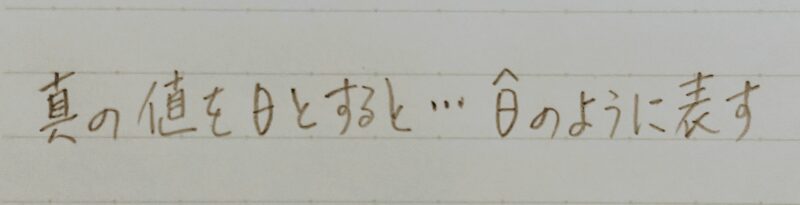 真の値をθとすると… θ̂のように表す